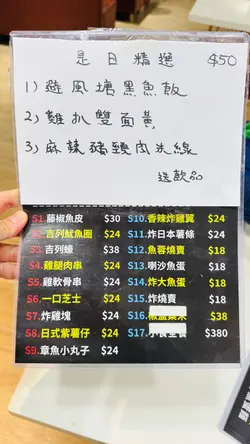 是日精選 $50
1) 避風塘黑魚飯
2) 雞扒雙面黃
3) 麻辣豬頸肉米線
送飲品
S1.藤椒魚皮 $30
S2.吉列魷魚圈 $24
S3.吉列蠔 $38
S4.雞腿肉串 $24
S5.雞軟骨串 $24
S6.一口芝士 $24
S7.炸雞塊 $24
S8.日式紫薯仔 $24
S9.章魚小丸子 $24
S10.香辣炸雞翼 $24
S11.炸日本薯條 $24
S12.魚蓉燒賣 $18
S13.喇沙魚蛋 $18
S14.炸大魚蛋 $18
S15.炸燒賣 $18
S16. $38
S17. $380